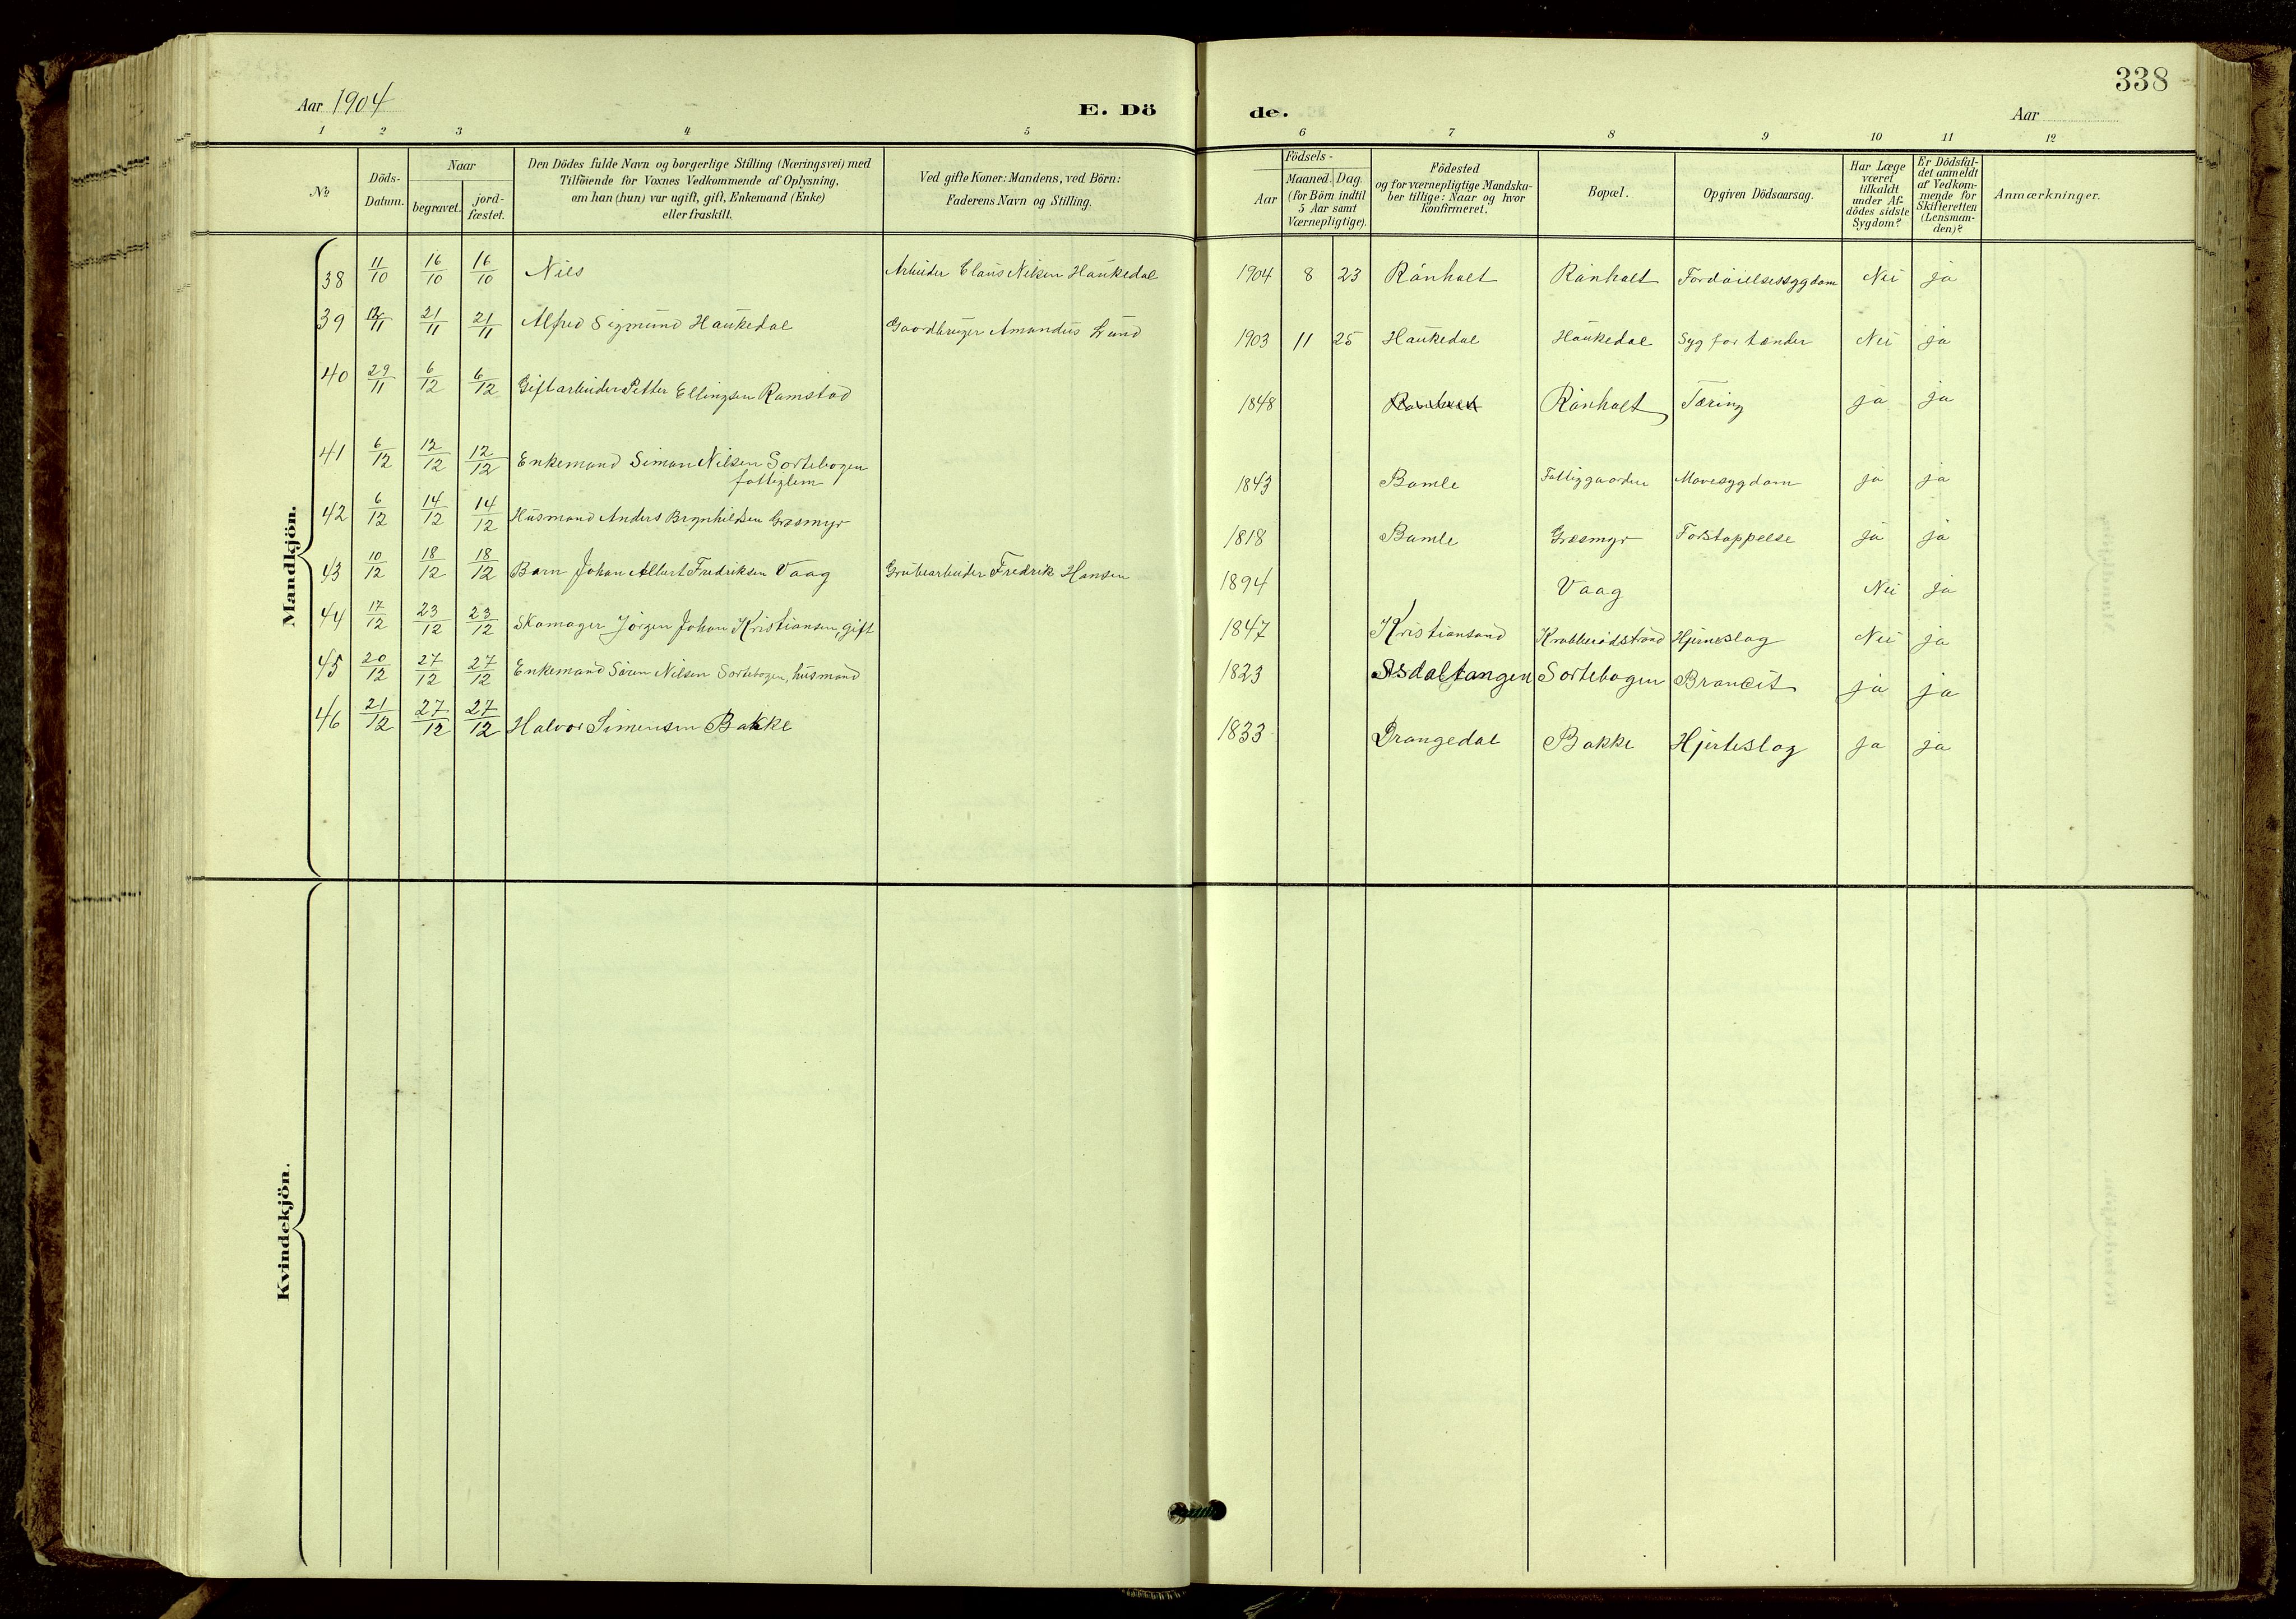 338
Aar 1904
E. Dö
de.
Aar
1 2 3 4 5 6 7 8 9 10 11 12
№
Döds-
Datum.
Naar
begravet.
jord-
fæstet.
Den Dödes fulde Navn og borgerlige Stilling (Næringsvei) med
Tilföiende for Voxnes Vedkommende af Oplysning,
om han (hun) var ugift, gift, Enkemand (Enke)
eller fraskilt.
Ved gifte Koner: Mandens, ved Börn:
Faderens Navn og Stilling.
Födsels-
Aar
Maaned. Dag.
(for Börn indtil
5 Aar samt
Værnepligtige).
Födested
og for værnepligtige Mandska-
ber tillige: Naar og hvor
konfirmeret.
Bopæl.
Opgiven Dödsaarsag.
Har Læge
været
tilkaldt
under Af-
dödes sidste
Sygdom?
Er Dödsfal-
det anmeldt
af Vedkom-
mende for
Skifteretten
(Lensman-
den)?
Anmærkninger.
Mandkjön.
38 11/10 16/10 16/10 Nils Arbeider Claus Nilsen Haukedal 1904 8 23 Rånholt Rånholt Fordöielsessygdom Nei ja
39 /11 21/11 21/11 Alfred Sigmund Haukedal Gaardbruger Amandus Lund 1903 11 25 Haukedal Haukedal Syg for tænder Nei ja
40 29/11 6/12 6/12 Gift arbeider Petter Ellingsen Ramstad 1848 Rånholt Tæring ja ja
41 6/12 12/12 12/12 Enkemand Simon Nilsen Sortebogen
fattiglem 1843 Bamle Fattiggaarden Mavesygdom ja ja
42 6/12 14/12 14/12 Husmand Anders Brynhildsen Græsmyr 1818 Bamle Græsmyr Forstoppelse ja ja
43 10/12 18/12 18/12 Barn Johan Albert Fredriksen Vaag Grubearbeider Fredrik Hansen 1894 Vaag Nei ja
44 17/12 23/12 23/12 Skomager Jörgen Johan Kristiansen, gift 1847 Kristiansand Krabberödstrand Hjerneslag Nei ja
45 20/12 27/12 27/12 Enkemand Sören Nilsen Sortebogen, husmand 1823 Asdaltangen Sortebogen Broncit ja ja
46 21/12 27/12 27/12 Halvor Simensen Bakke 1833 Drangedal Bakke Hjerteslag ja ja
Kvindekjön.